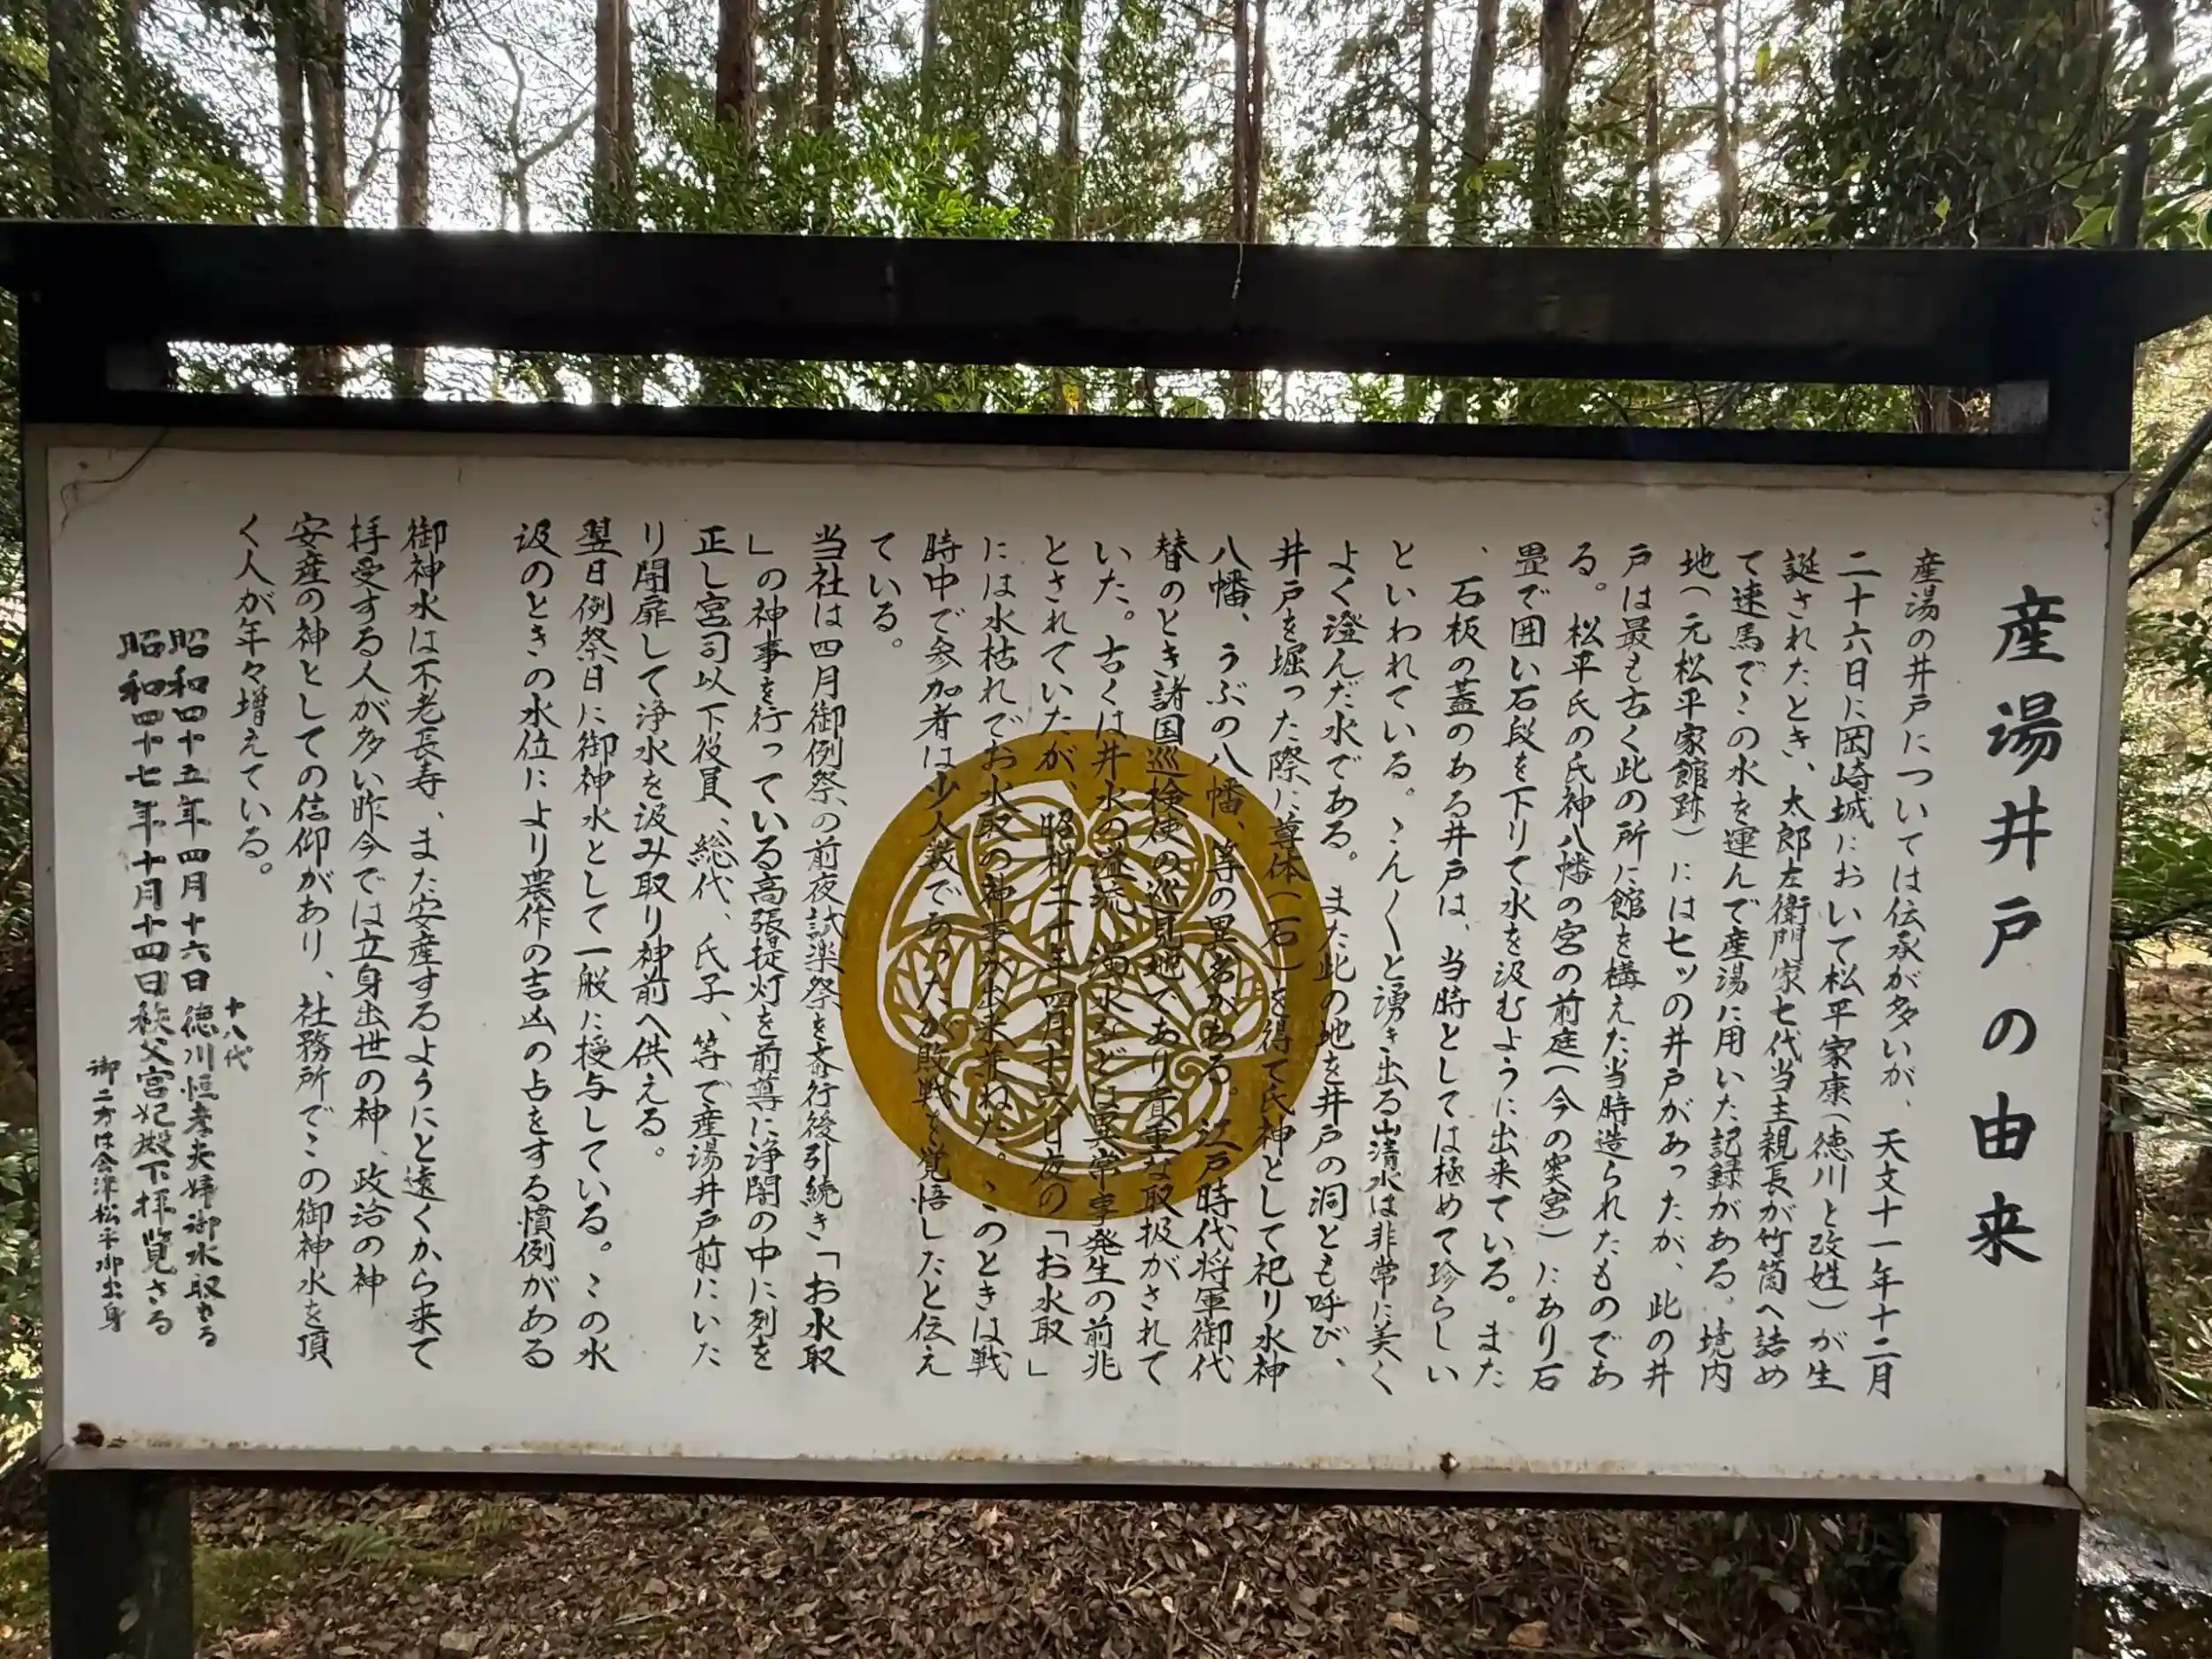 産湯井戸の由来
産湯の井戸については伝承が多いが、天文十一年十二月
二十六日に岡崎城において松平家康(徳川と改姓)が生
誕されたとき、太郎左衛門家七代当主親長が竹筒へ詰め
て速馬でこの水を運んで産湯に用いた記録がある。境内
地(元松平家館跡)には七ッの井戸があったが、此の井
戸は最も古く此の所に館を構えた当時造られたものであ
る。松平氏の氏神八幡の宮の前庭(今の奥宮)にあり石
畳で囲い石段を下りて水を汲むように出来ている。また
、石板の蓋のある井戸は、当時としては極めて珍らしい
といわれている。こんくと湧き出る山清水は非常に美く
よく澄んだ水である。また此の地を井戸の洞とも呼び、
井戸を堀った際に尊体(石)を得て氏神として祀り水神
八幡、うぶの八幡、等の異名がある。江戸時代将軍御代
替のとき諸国巡検使の巡見地であり貴重な取扱がされて
いた。古くは井水の溢流、濁水などは異常事発生の前兆
とされていたが、昭和二十年四月十六日夜の「お水取」
には水枯れでお水取の神事が出来兼ねた。このときは戦
時中で参加者は少人数であったが敗戦を覚悟したと伝え
ている。
当社は四月御例祭の前夜試楽祭を斎行後引続き「お水取
」の神事を行っている高張提灯を前導に浄闇の中に列を
正し宮司以下役員、総代、氏子、等で産湯井戸前にいた
り開扉して浄水を汲み取り神前へ供える。
翌日例祭日に御神水として一般に授与している。この水
汲のときの水位により農作の吉凶の占をする慣例がある
御神水は不老長寿、また安産するようにと遠くから来て
拝受する人が多い昨今では立身出世の神、政治の神
安産の神としての信仰があり、社務所でこの御神水を頂
く人が年々増えている。
昭和四十五年四月十六日十八代徳川恒孝夫婦御水取せる
昭和四十七年十月十四日秩父宮妃殿下拝覧さる
御二方は会津松平御出身